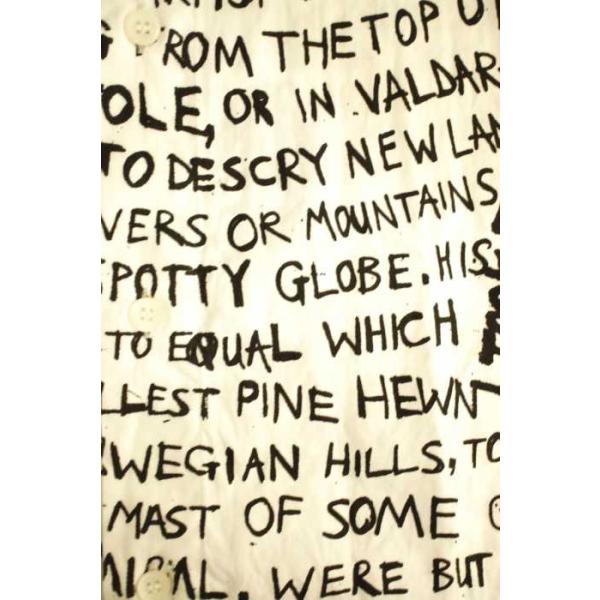 FROM THE TOP O
OLE, OR IN VALDAR
TO DESCRY NEW LAN
VERS OR MOUNTAINS
SPOTTY GLOBE. HIS
TO EQUAL WHICH
LLEST PINE HEWN
WEGIAN HILLS, TO
MAST OF SOME
MIRAL, WERE BUT